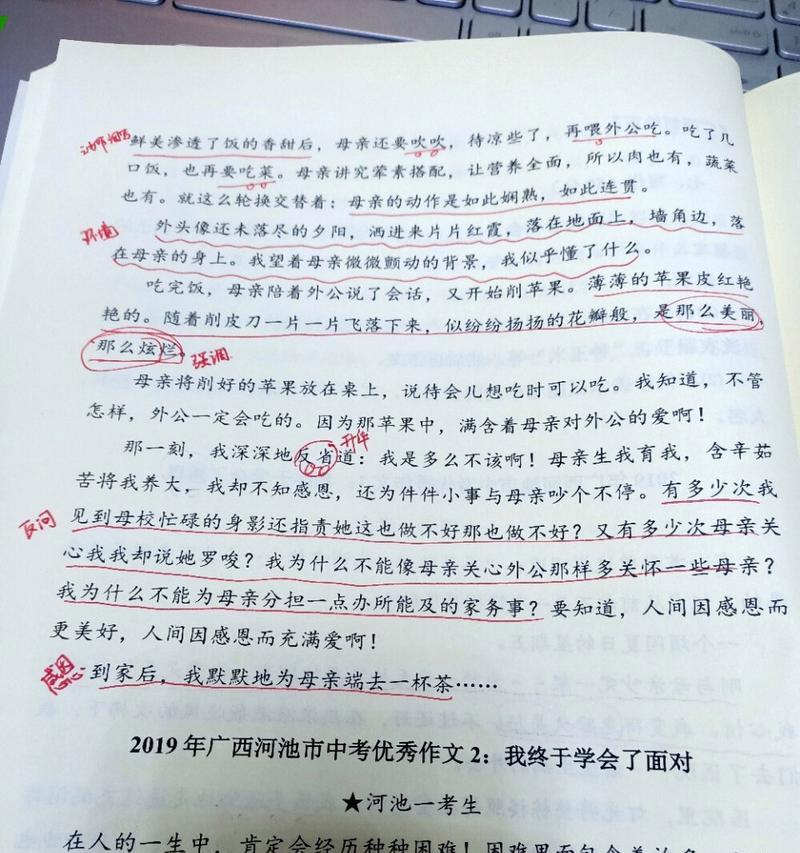 动作描写
鲜美渗透了饭的香甜后，母亲还要吹吹，待凉些了，再喂外公吃。吃了几
口饭，也再要吃菜。母亲讲究荤素搭配，让营养全面，所以肉也有，蔬菜
也有。就这么轮换交替着：母亲的动作是如此娴熟，如此连贯。
环境
外头像还未落尽的夕阳，洒进来片片红霞，落在地面上，墙角边，落
在母亲的身上。我望着母亲微微颤动的背景，我似乎懂了什么。
吃完饭，母亲陪着外公说了会话，又开始削苹果。薄薄的苹果皮红艳
艳的。随着削皮刀一片一片飞落下来，似纷纷扬扬的花瓣般，是那么美丽，
那么炫烂。
强调
母亲将削好的苹果放在桌上，说待会儿想吃时可以吃。我知道，不管
怎样，外公一定会吃的。因为那苹果中，满含着母亲对外公的爱啊！
升华
那一刻，我深深地反省道：我是多么不该啊！母亲生我育我，含辛茹
苦将我养大，我却不知感恩，还为件件小事与母亲吵个不停。有多少次我
反问
见到母校忙碌的身影还指责她这也做不好那也做不好？又有多少次母亲关
心我我却说她罗唆？我为什么不能像母亲关心外公那样多关怀一些母亲？
我为什么不能为母亲分担一点办所能及的家务事？要知道，人间因感恩而
更美好，人间因感恩而充满爱啊！
感恩
到家后，我默默地为母亲端去一杯茶……
2019年广西河池市中考优秀作文2：我终于学会了面对
★河池一考生
在人的一生中，肯定会经历种种困难！困难里面包含着